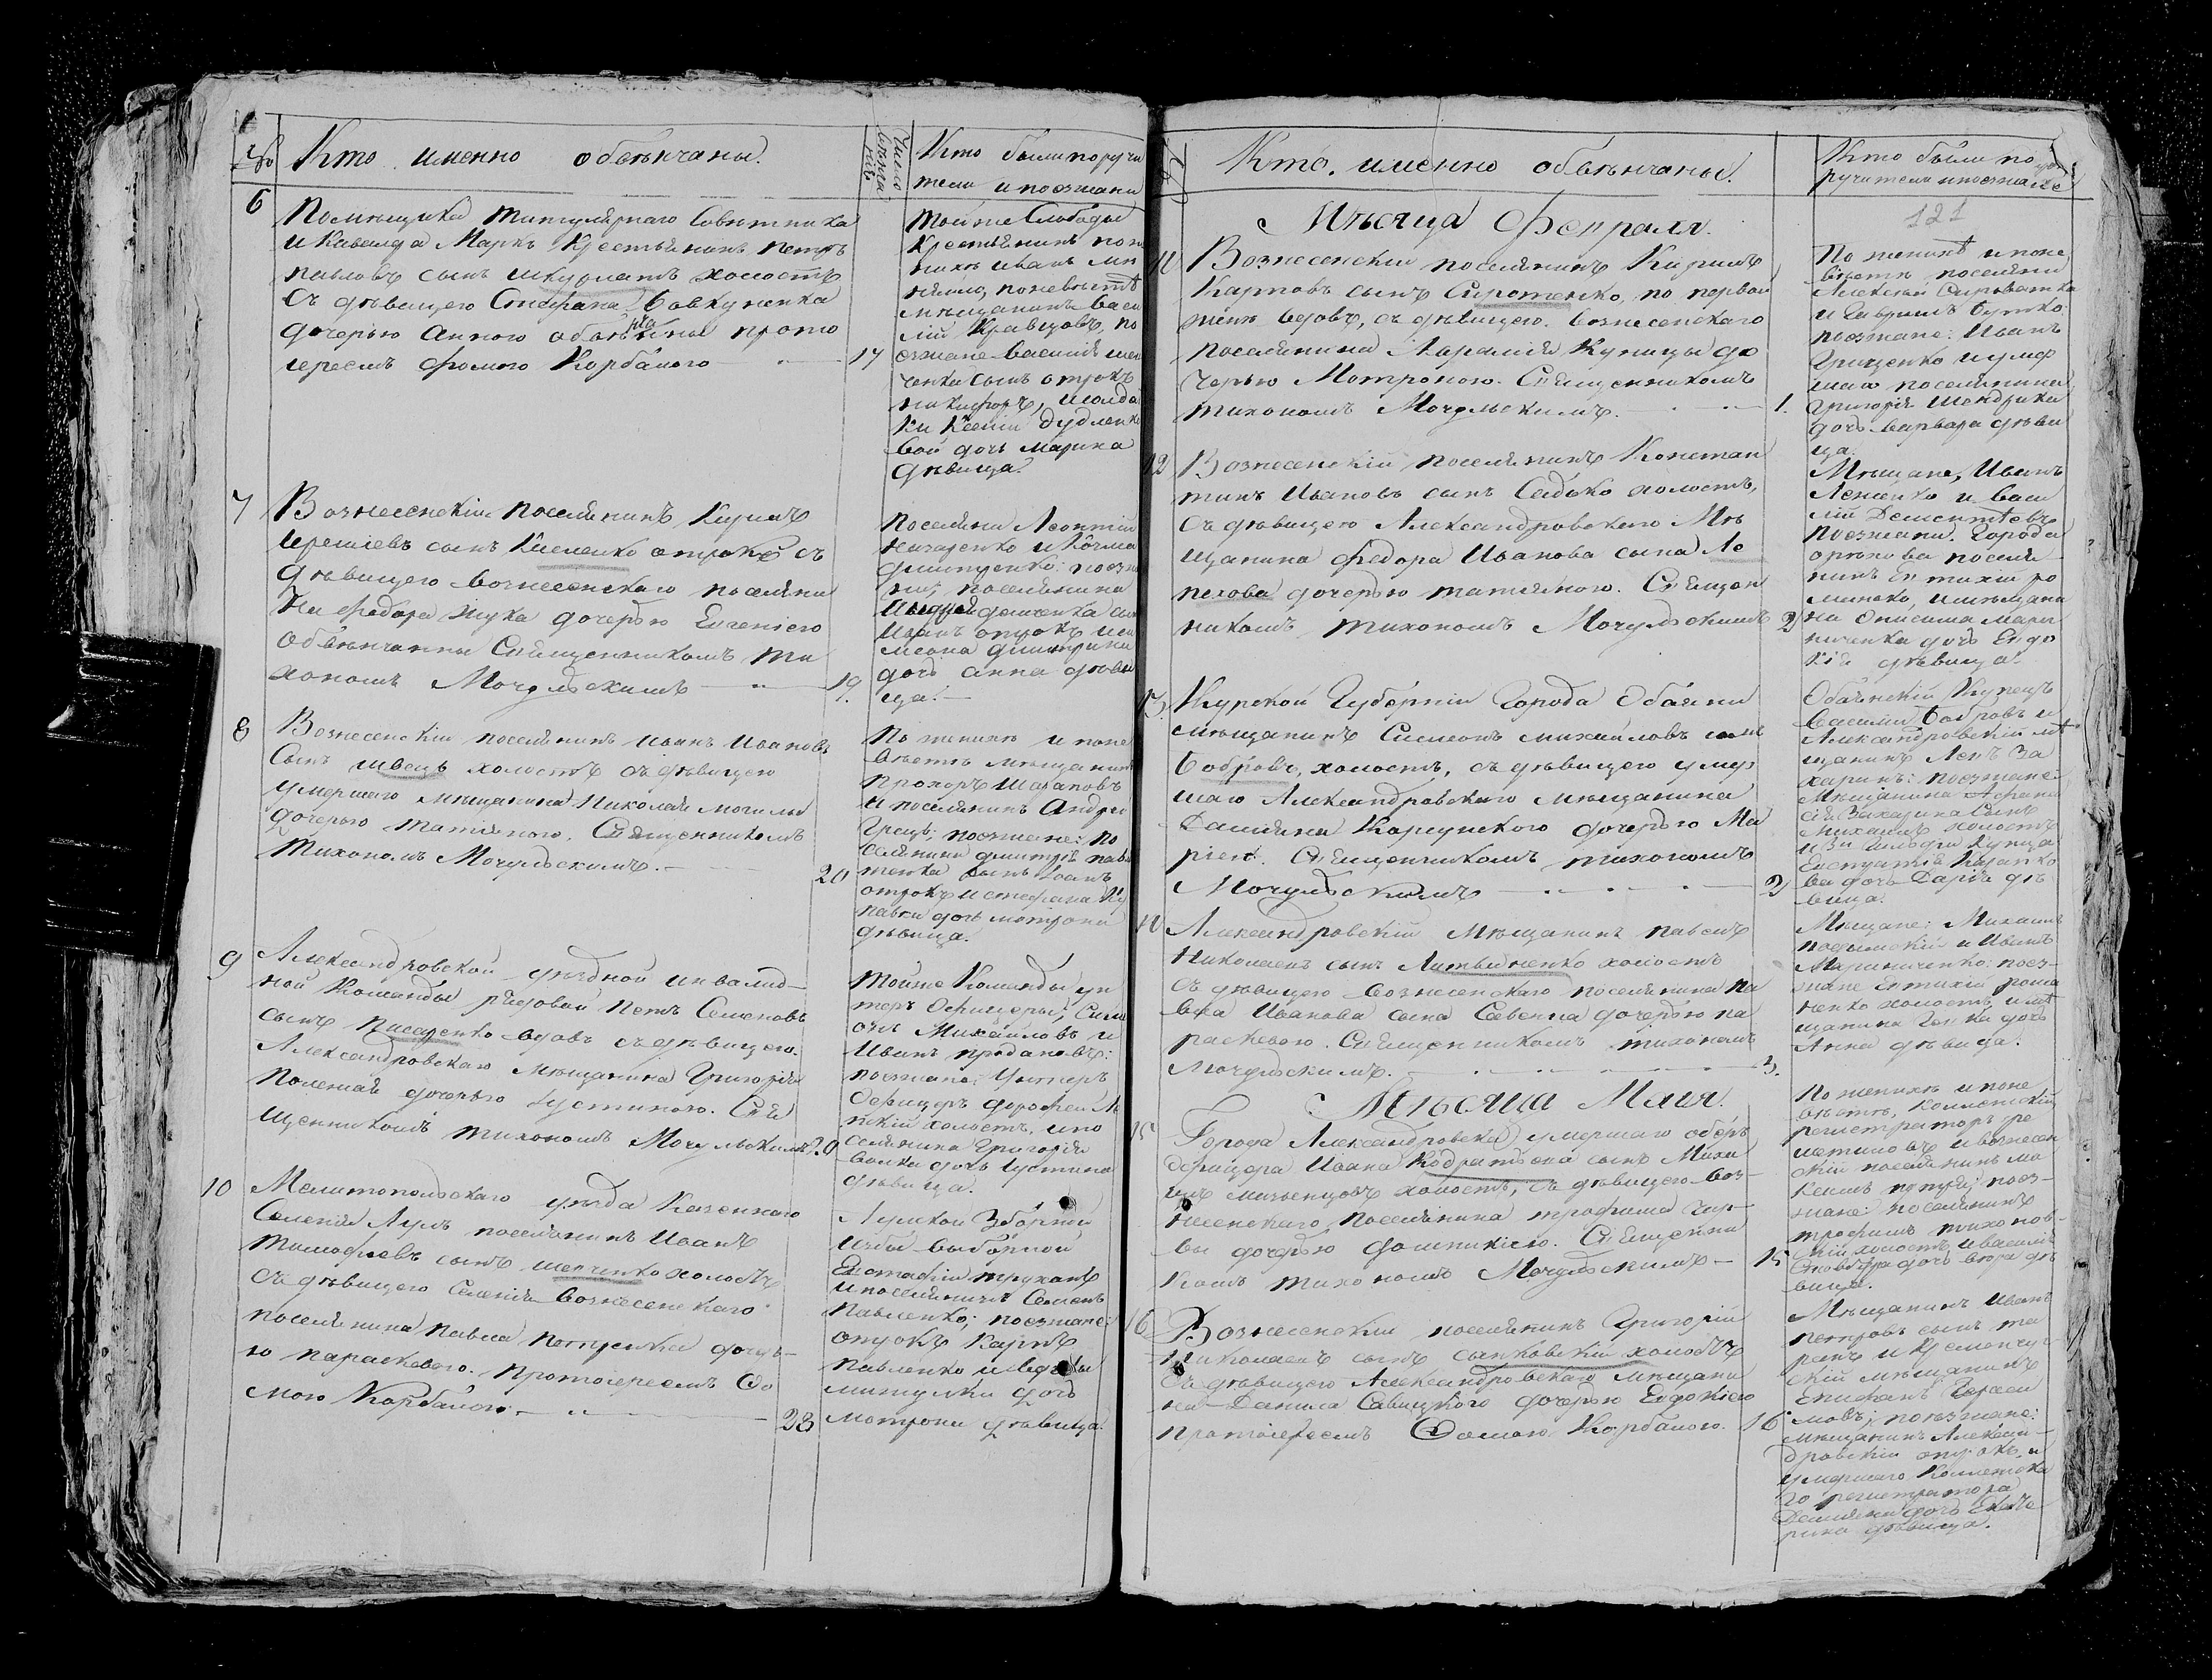 №
Кто именно обвѣнчаны.
Число
Кто были поручи
тели и поезжани
6
Помѣщика титулярнаго Совѣтника
и Кавалера Марка Крестьянинъ Петръ
павловъ сынъ шкурлатъ холостъ
Съ дѣвицею Стефана Бовкуненка
дочерью Анною обвѣнчаны прото
іереемъ Фомою Корбаною
17
Тойже Слободы
Крестянинъ по же
нихѣ Иванъ
поневѣстѣ
мѣщанинъ Васи
лій Кравцовъ, по
езжане Василія
ченка сынъ отрокъ
никифоръ, исолда
ки Ксеніи дудленко
вой дочь Марина
дѣвица.
7
Вознесенскій поселянинъ Кирилъ
сынъ отрокъ съ
дѣвицею Вознесенскаго поселяни
на Федора жука дочерью Евгеніею
Обвѣнчанны Священникомъ Ти
хономъ Мочульскимъ
19.
Поселяни Леонтій
и Козма
поезжа
ни, поселянина
сынъ
Иванъ отрокъ иси
меона
дочь анна дѣви
ца.
8
Вознесенскій поселянинъ Иванъ Ивановъ
Сынъ швець холостъ съ дѣвицею
умершаго мѣщанина Николая могилы
дочерью татіяною. Священникомъ
Тихономъ Мочульскимъ.
20
По женихѣ и поне
вѣстѣ мѣщанинъ
Прохоръ Шаповъ
и поселянинъ Андрей
Грець; поезжане: по
селянина дмитрія павл
тенка сынъ Іоанъ
отрокъ и стефана Ку
павки дочь мотрона
дѣвица.
9
Александровской уѣздной инвалид-
ной Команды рядовой Петъ Семеновъ
сынъ Писаренко вдовъ съ дѣвицею.
Александровскаго Мѣщанина Григорія
Полежая дочерью Іустиною. Свя
щенникомъ тихономъ Мочульскимъ
20
Тойже Команды ун
теръ Офицеры, Сим
онъ Михайловъ и
Иванъ продановъ:
поезжане, Унтеръ
Офицеръ дорофей
скій холостъ, ипо
селянина Григорія
волка дочь Іустина
дѣвица.
10
Мелитопольскаго уѣзда Казеннаго
Селенія поселянинъ Иванъ
тимофеевъ сынъ шевченко холостъ
Съ дѣвицею Селенія Вознесенскаго
поселянина Павла Петренка дочер-
ю параскевою. Протоіереемъ Фо
мою Корбаною
28
Зборной
Избы выборной
Евстафій труханъ
и поселянинъ Семенъ
павленко; поезжане:
отрокъ Карпъ
павленко и вдовы
дочь
мотрона дѣвица.
№
Кто именно обвѣнчаны.
Кто были по
ручители ипоезжане
121
Мѣсяца Февраля.
11
Вознесенскій поселянинъ Кирилъ
Карповъ сынъ Сиротенко, по первой
женѣ вдовъ, съ дѣвицею вознесенскаго
поселянина Ларіонія Куницы до
черью Мотроною. Священникомъ
тихономъ Мочульскимъ.
1.
По женихѣ и поне
вѣстѣ поселяни
Алексѣй Сироватка
и Гавріилъ Бутко
поезжане: Иванъ
Гриценко иумер
шаго поселянина
Григорія Шендрика
дочь варвара дѣви
ца.
12
Вознесенскій поселянинъ Констан
тинъ Ивановъ сынъ Садько холостъ,
съ дѣвицею Александровскаго Мѣ
щанина Федора Иванова сына Ле
пехова дочерью татіяною. Священ
никомъ тихономъ Мочульскимъ
2
Мѣщане, Иванъ
и Васи
лій Дементѣевъ
поезжани. Города
орѣхова поселя
нинъ Евтихій ро
маненко, имѣщани
на Онисима Мари
ниченка дочь Евдо
кія дѣвица.
13.
Курской Губерніи Города Обаяни
мѣщанинъ Симеонъ михайловъ сынъ
Бобровъ, холостъ, съ дѣвицею умер
шаго Александровскаго мѣщанина
Даміяна Корсунского дочерью Ма
ріею. Священникомъ тихономъ
Мочульскимъ
2
Обаянскій Купецъ
Василій Бобровъ и
Александровскій мѣ
щанинъ Левъ За
харинъ: поезжане:
Мѣщанина Афана
сія Захарина Сынъ
Михаилъ холостъ
и 3й гильдіи Купца
Евстратія
ва дочь Дарія дѣ
вица.
14
Александровскій Мѣщанинъ павелъ
Николаевъ сынъ Литвиненко холостъ
съ дѣвицею Вознесенскаго поселянина Па
вла Иванова сына Савенка дочерью па
раскевою. Священникомъ тихономъ
Мочульскимъ.
3.
Мѣщане: Михаилъ
и Иванъ
Мариниченко: поез-
жане Евтихій рома
ненко холостъ, имѣ
щанина дочь
Анна дѣвица.
Мѣсяца Маія.
15
Города Александровска умершаго оберъ
офицера Ивана Кодратьева сынъ Миха
илъ холостъ, съ дѣвицею воз-
несенскаго поселянина трофима
вы дочерью домникіею. Священни
комъ тихономъ Мочульскимъ
15
По женихѣ и поне
вѣстѣ, Колежскій
регистраторъ
и вознесен
скій поселянинъ ма
ксимъ поез-
жане поселянинъ
трофимъ тихонов-
скій холостъ и василія
дочь вѣра дѣ
вица.
16
Вознесенскій поселянинъ Григорій
Николаевъ сынъ сынковскій холостъ
съ дѣвицею Александровскаго мѣщани
на Данила Савицкого дочерью Евдокіею
протоіереемъ Фомою Корбаною.
16
Мѣщанинъ Иванъ
петровъ сынъ та
ранъ и Кременчуг-
скій мѣщанинъ
Епифанъ Гераси
мовъ; поезжане:
мѣщанинъ Алексан-
дровскій отрокъ и
умершаго Колежска
го регистратора
Даміяна дочь Екате
рина дѣвица.